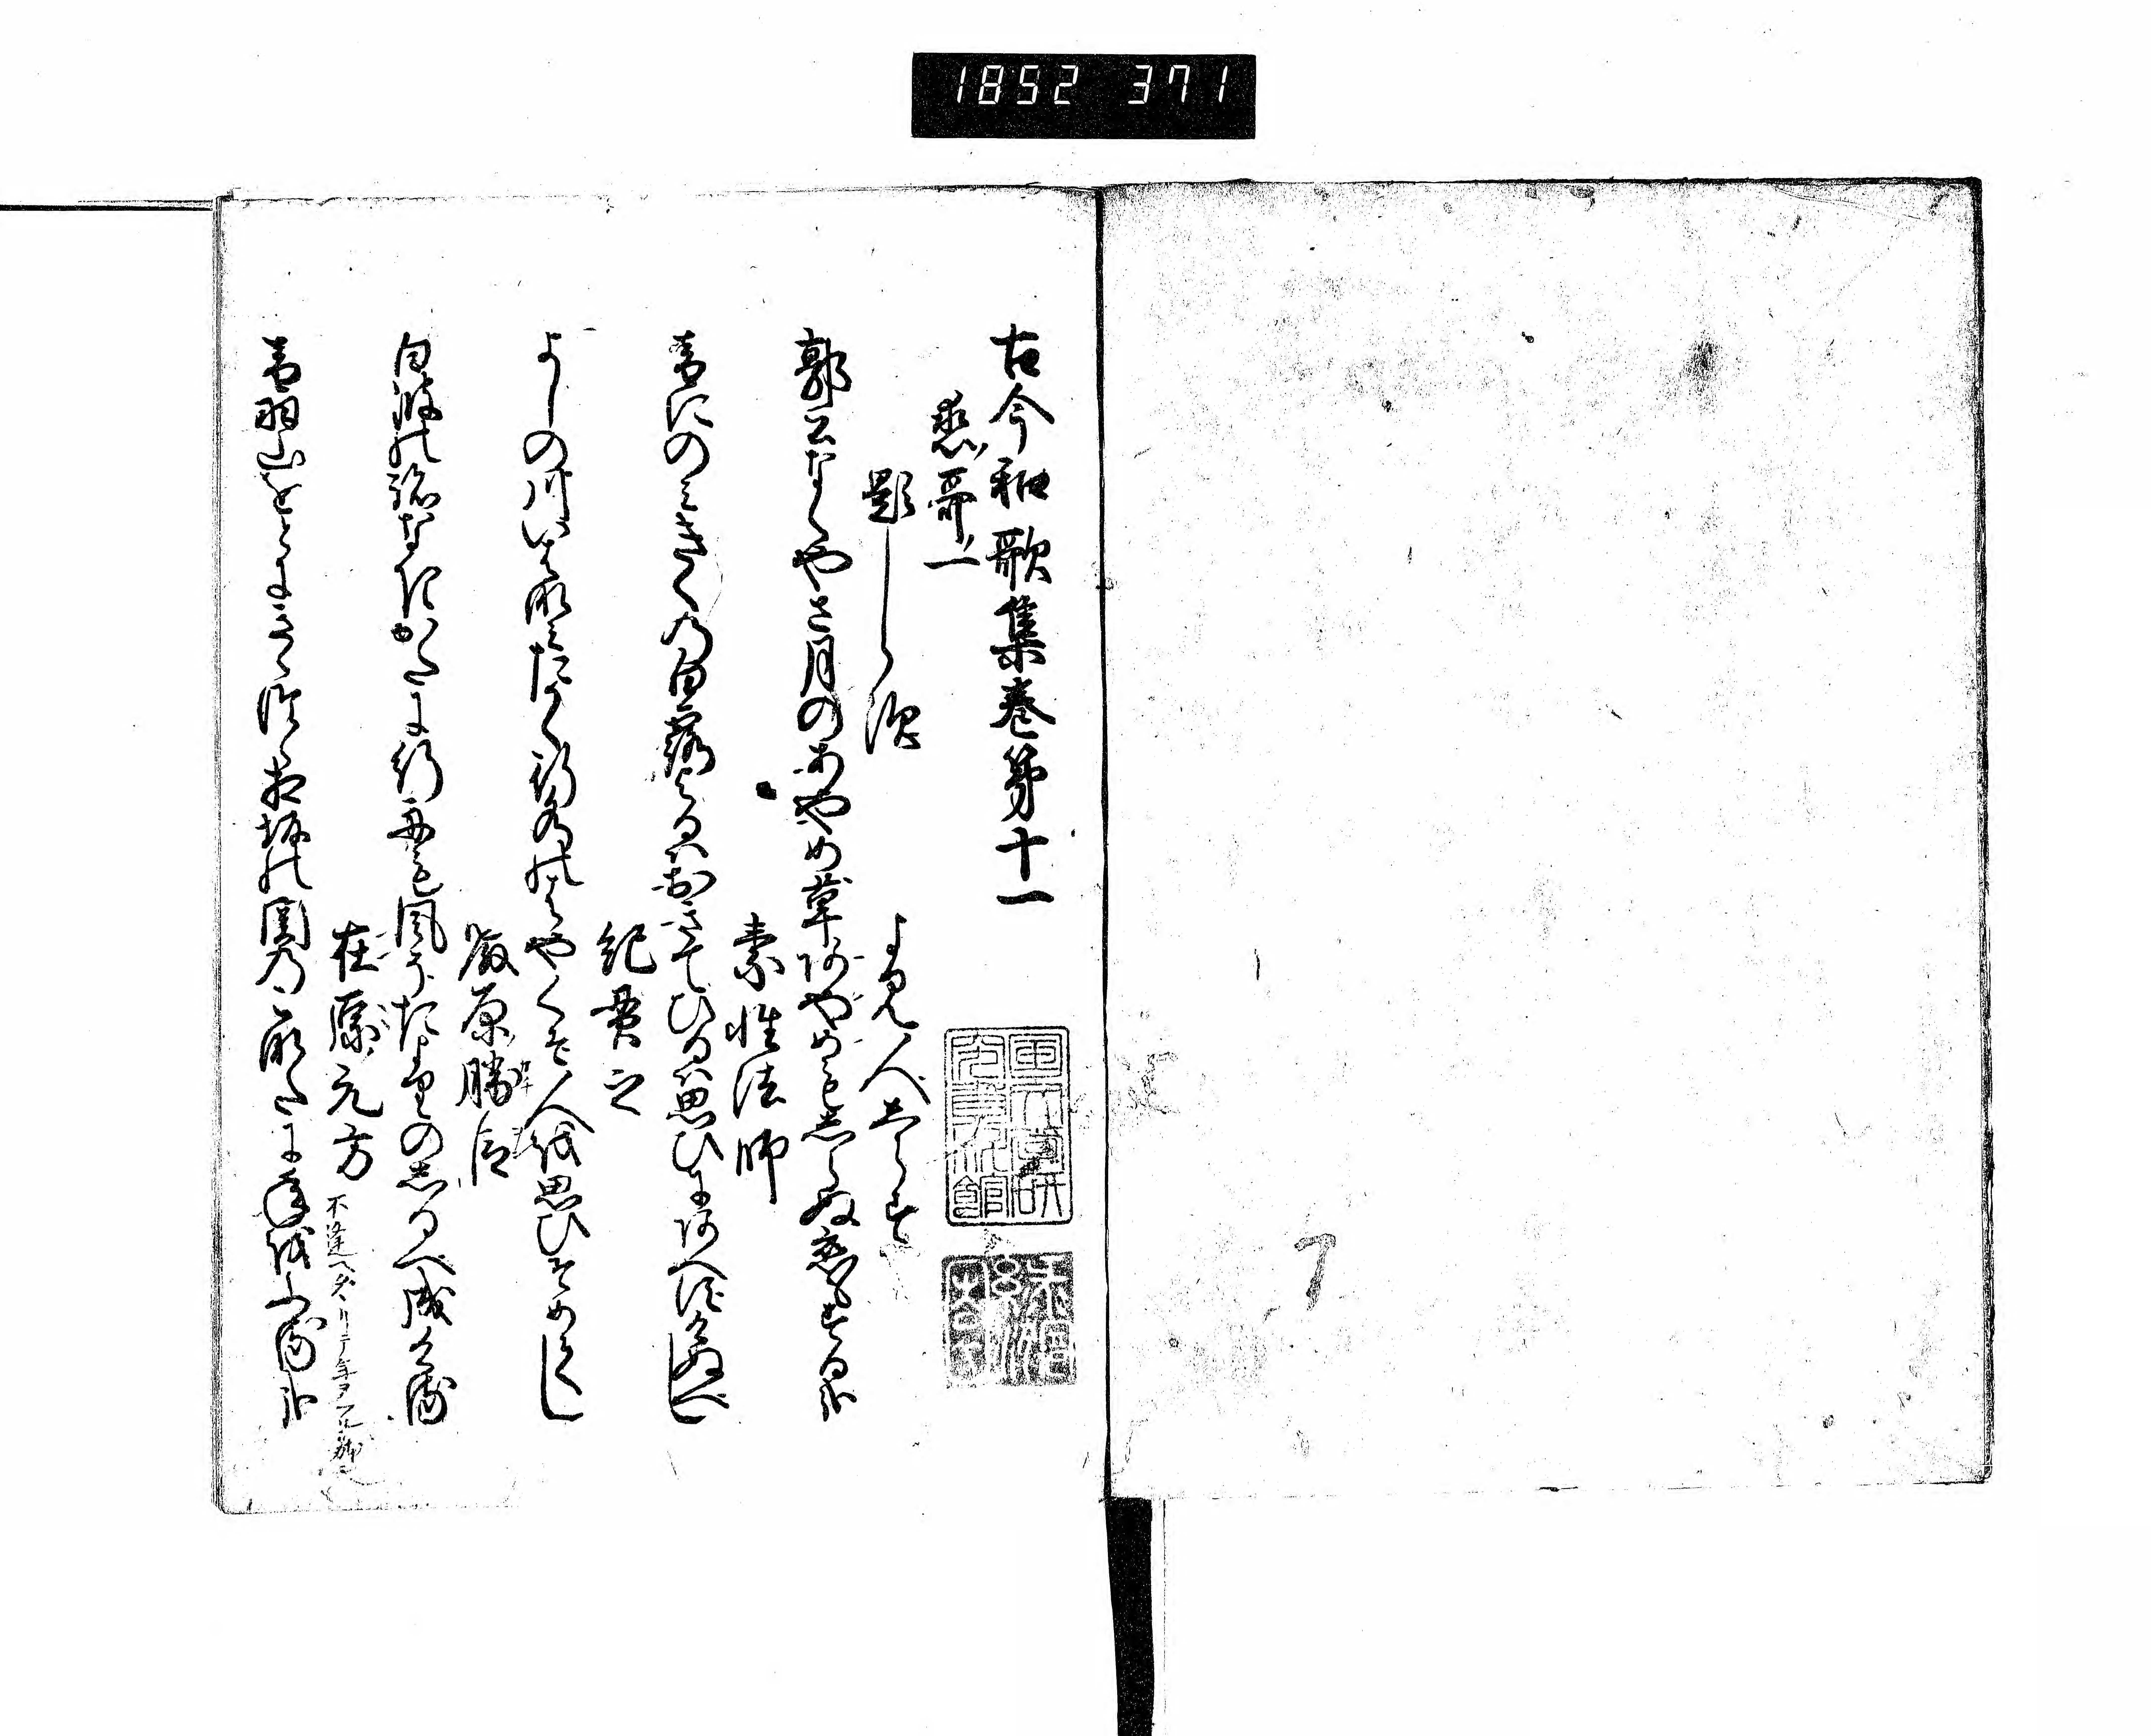 1852 371
古今和歌集巻第十一
恋哥一
題しらす
よみ人しらす
郭公なくやさ月のあやめ草あやめもしらぬ恋もする哉
素性法師
音にのみきくの白露よるはおきてひるは思ひにあへすけぬへし
紀貫之
よしの川いは波たかく行水のはやくそ人を思ひそめてし
藤原勝臣
白波の跡なきかたに行舟も風そたよりのしるへ成ける
在原元方
音羽山をとにきゝつゝ相坂の関のこなたに年をふる哉